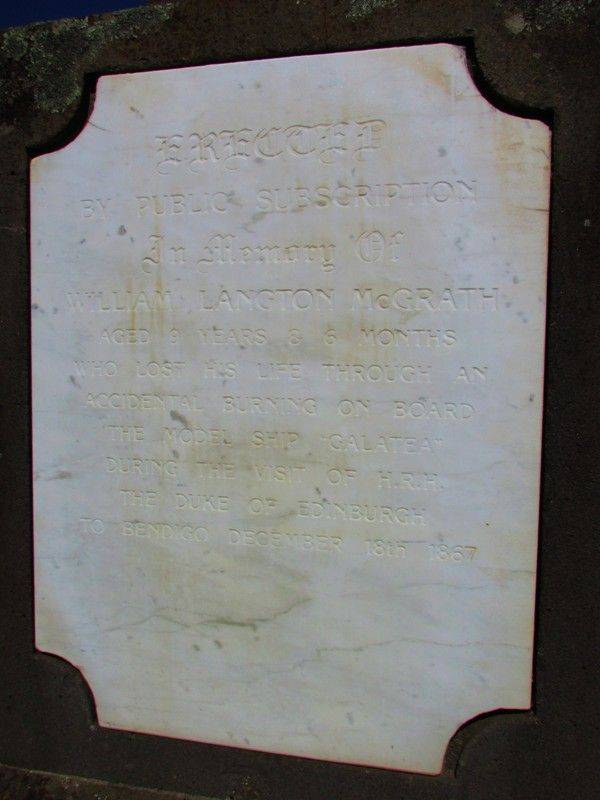 ERECTED
BY PUBLIC SUBSCRIPTION
In Memory Of
WILLIAM LANGTON McGRATH
AGED 9 YEARS & 6 MONTHS
WHO LOST HIS LIFE THROUGH AN
ACCIDENTAL BURNING ON BOARD
THE MODEL SHIP "GALATEA"
DURING THE VISIT OF H.R.H.
THE DUKE OF EDINBURGH
TO BENDIGO DECEMBER 18th 1867